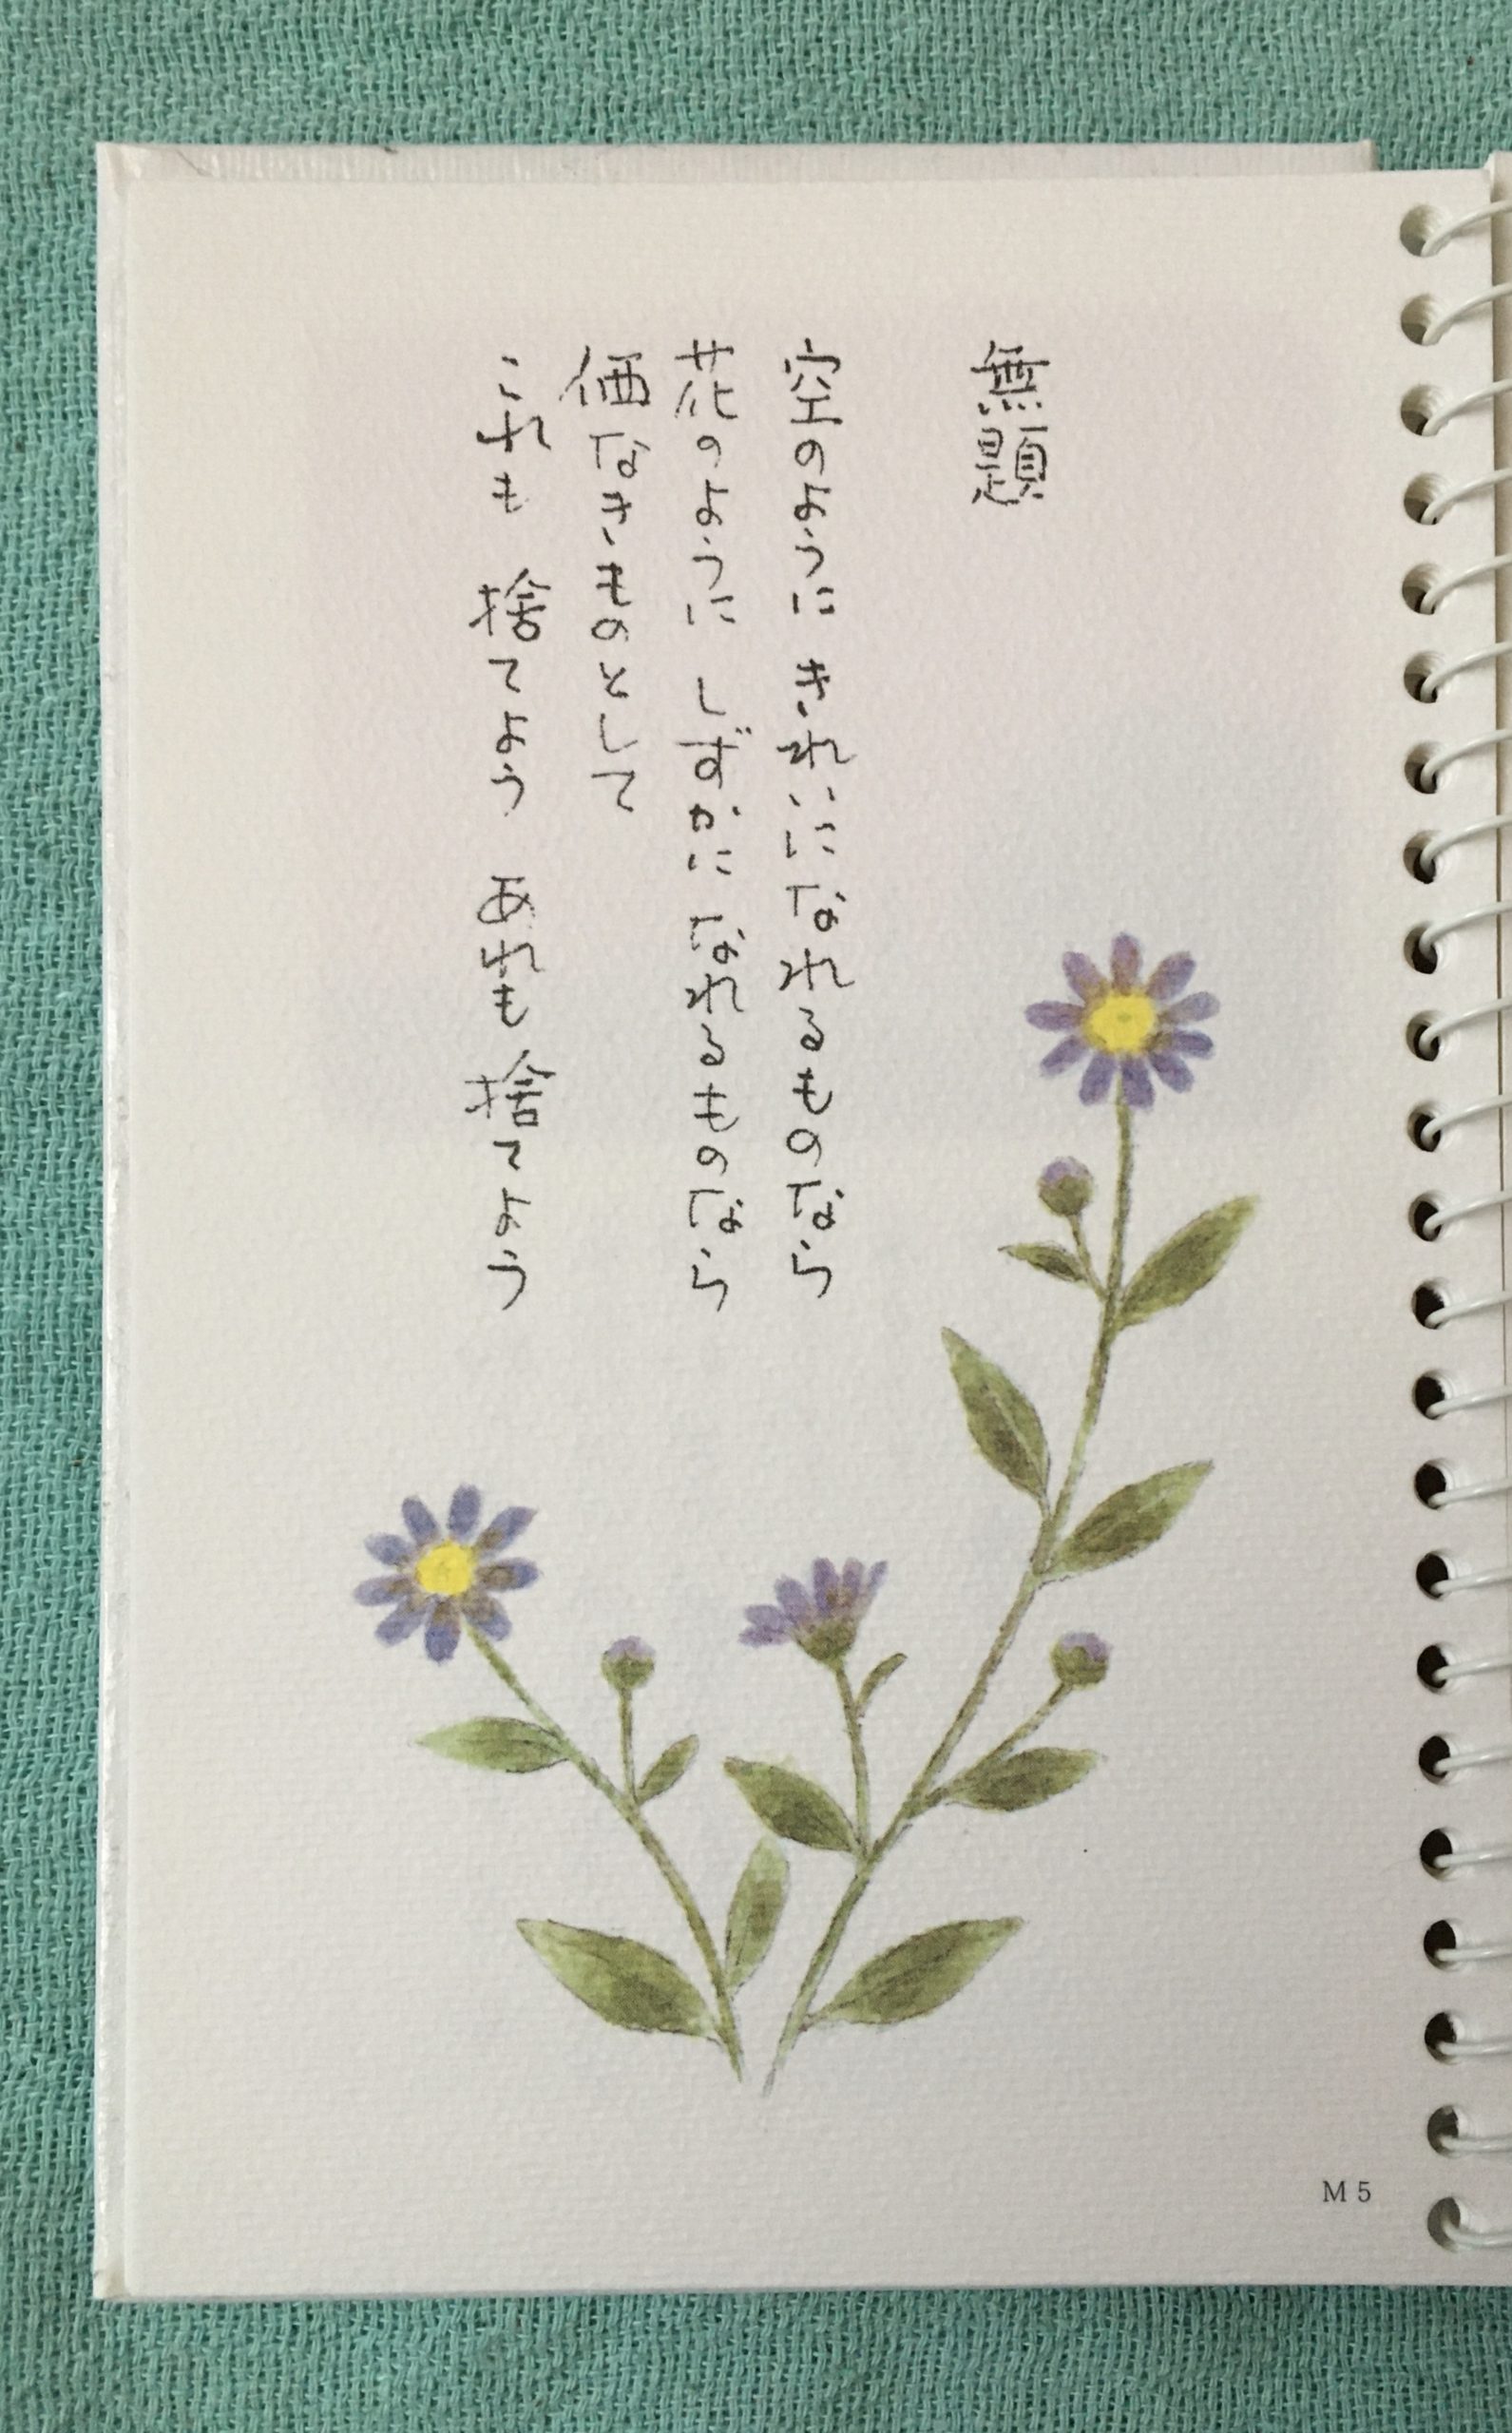 無題
空のように きれいになれるものなら
花のように しずかに なれるものなら
価なきものとして
これも 捨てよう あれも 捨てよう
M 5